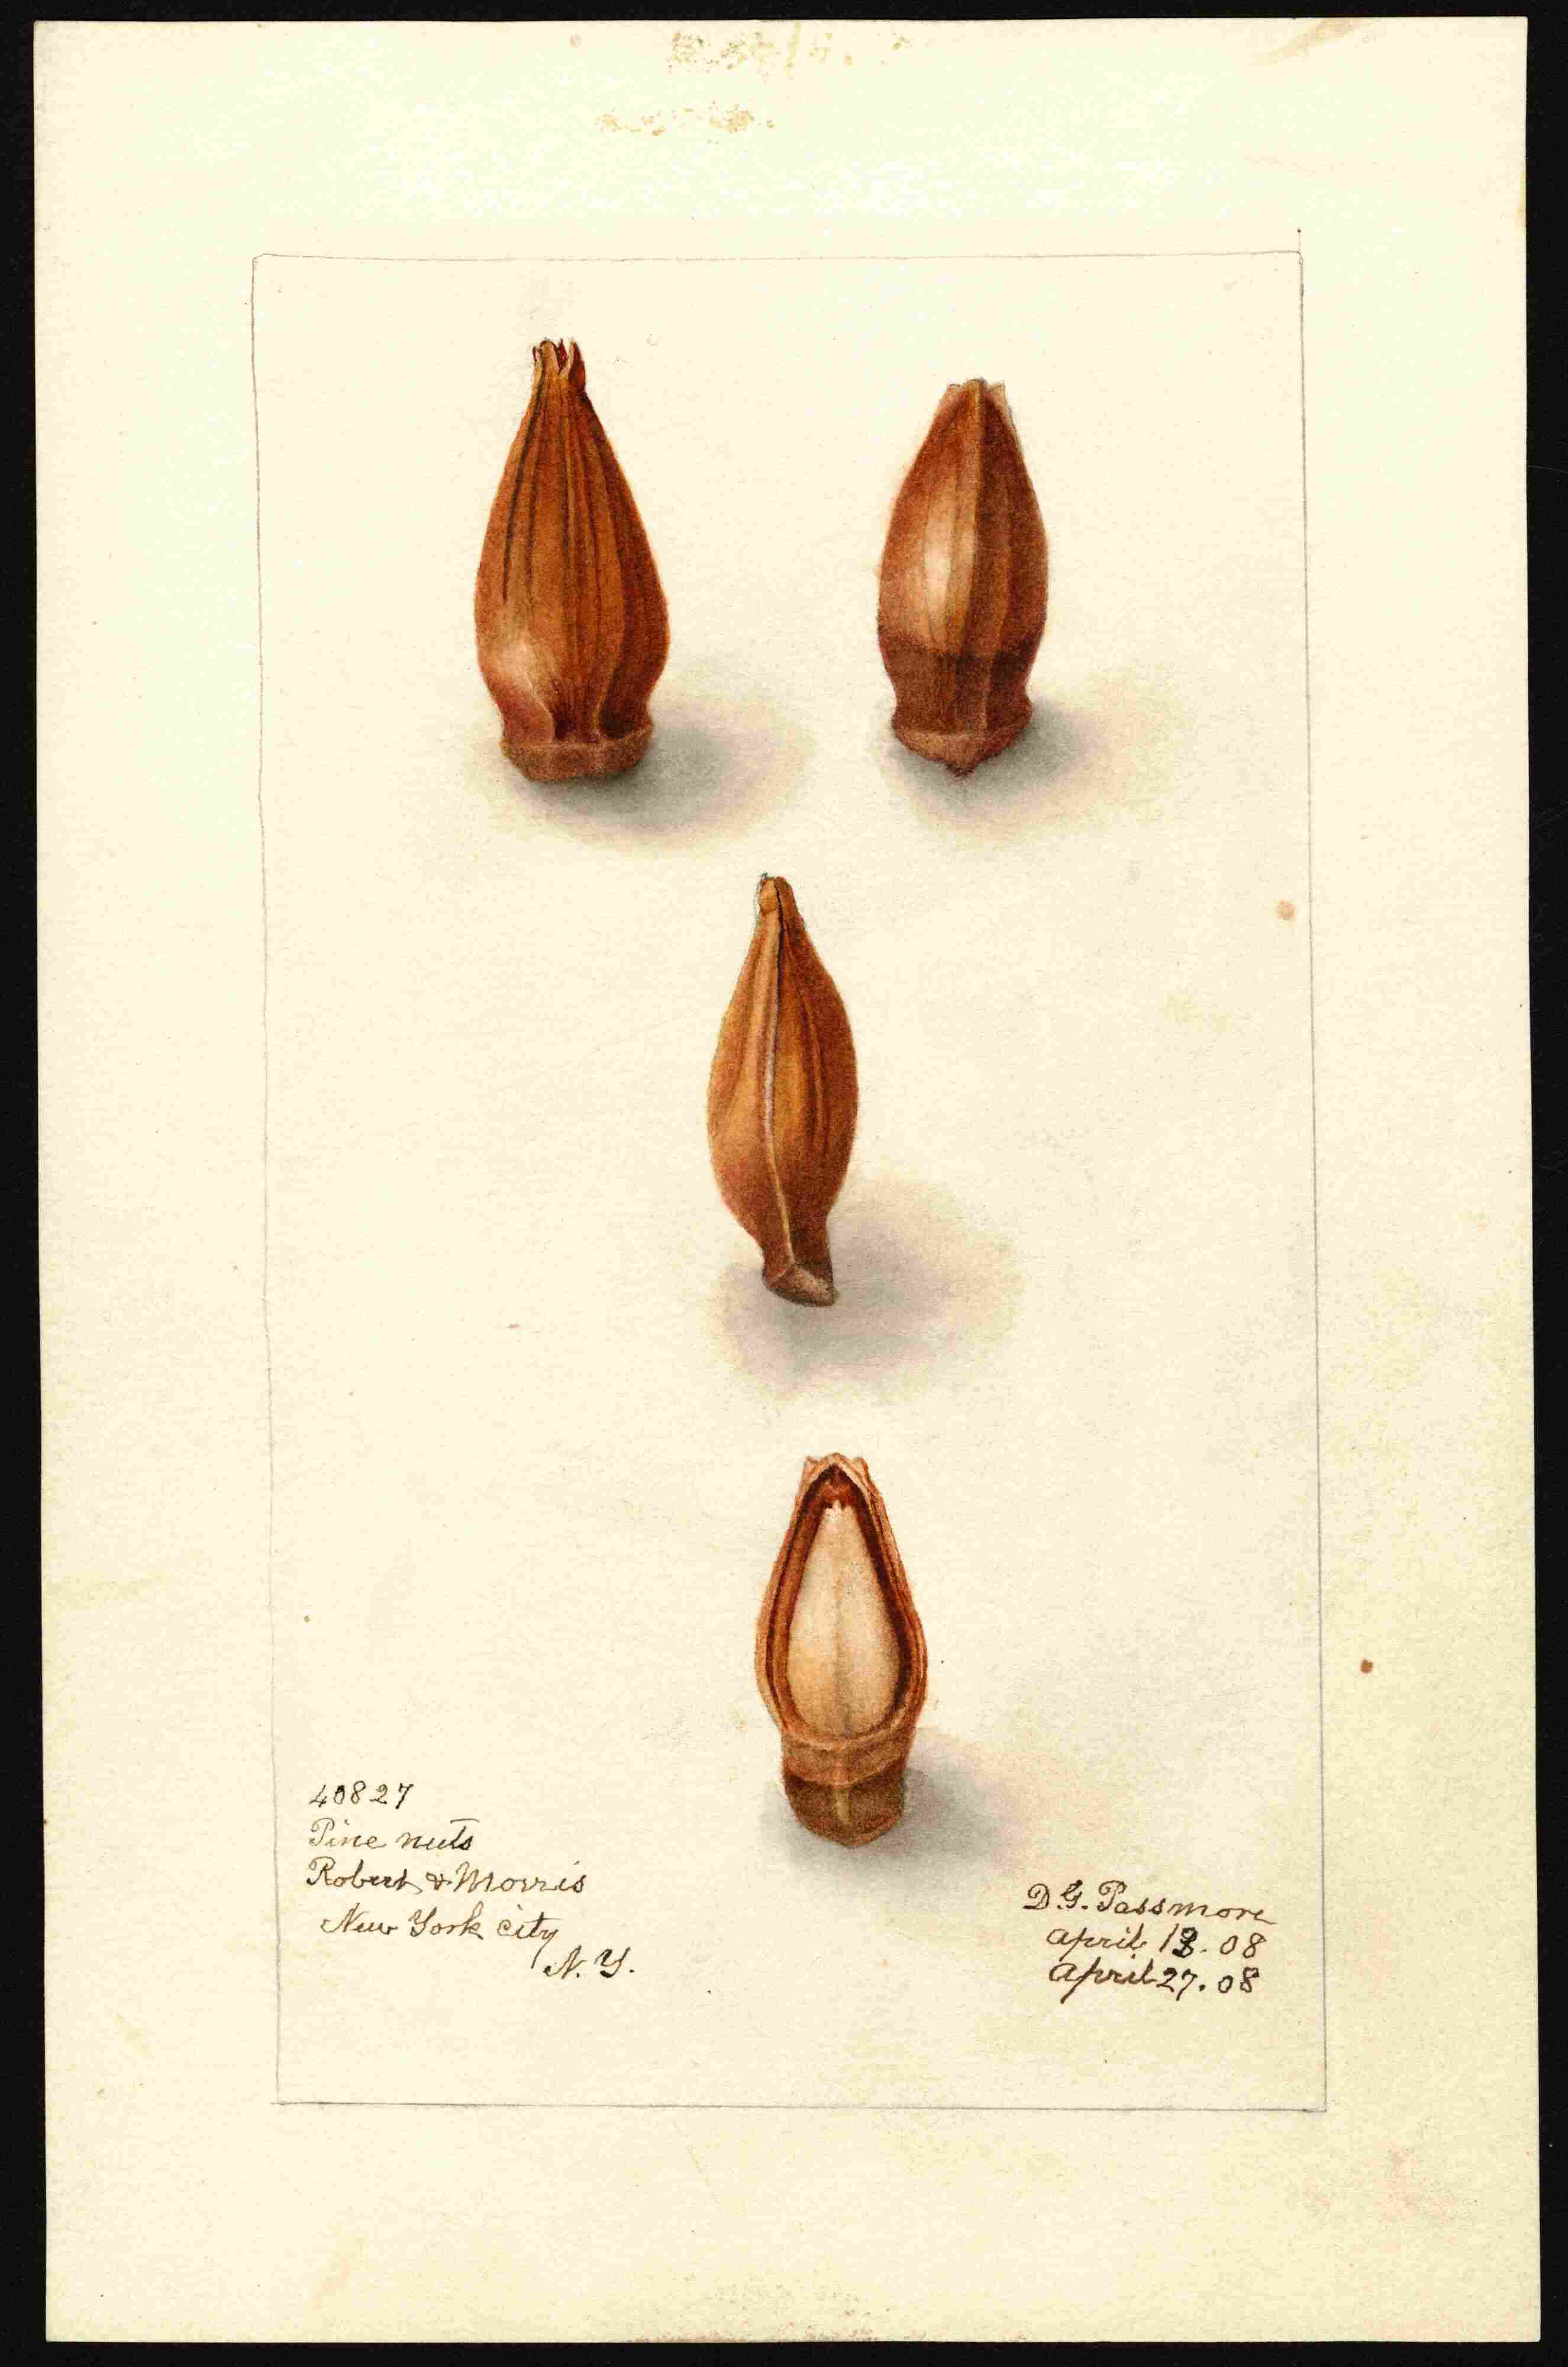 40827
Pine nuts
Robert & Morris
New York city
N. Y.
D. G. Passmore
april 13. 08
april 27. 08